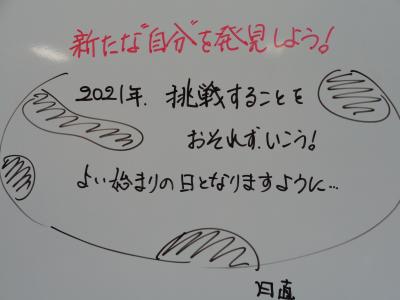 新たな"自分"を発見しよう!
2021年.挑戦することを
おそれず.いこう!
よい始まりの日となりますように…
日直